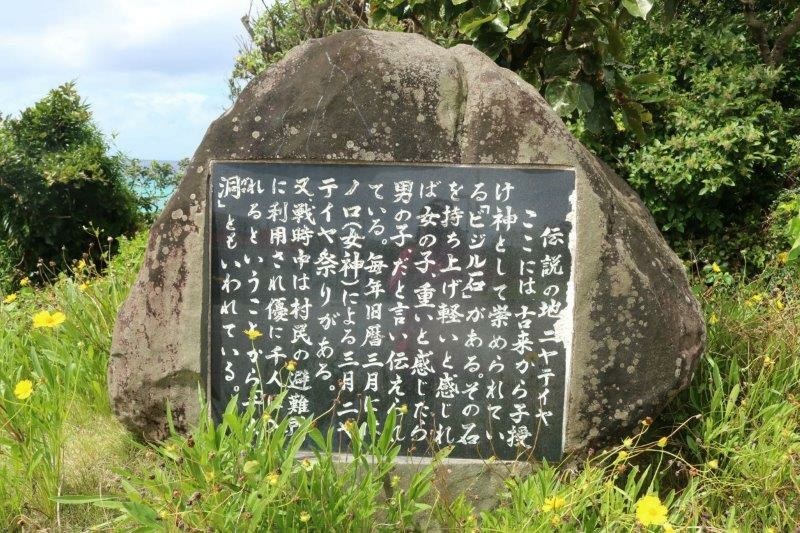 伝説の地ニヤティヤ
ここには古来から子授
け神として崇められてい
る「ビジル石」がある。その石
を持ち上げ軽いと感じれ
ば女の子、重いと感じたら
男の子だと言い伝えられ
ている。毎年旧暦三月に
ノロ(女神)による三月ニ
テイヤ祭りがある。
又、戦時中は村民の避難
に利用され優に千人
れるということから
洞」ともいわれている。